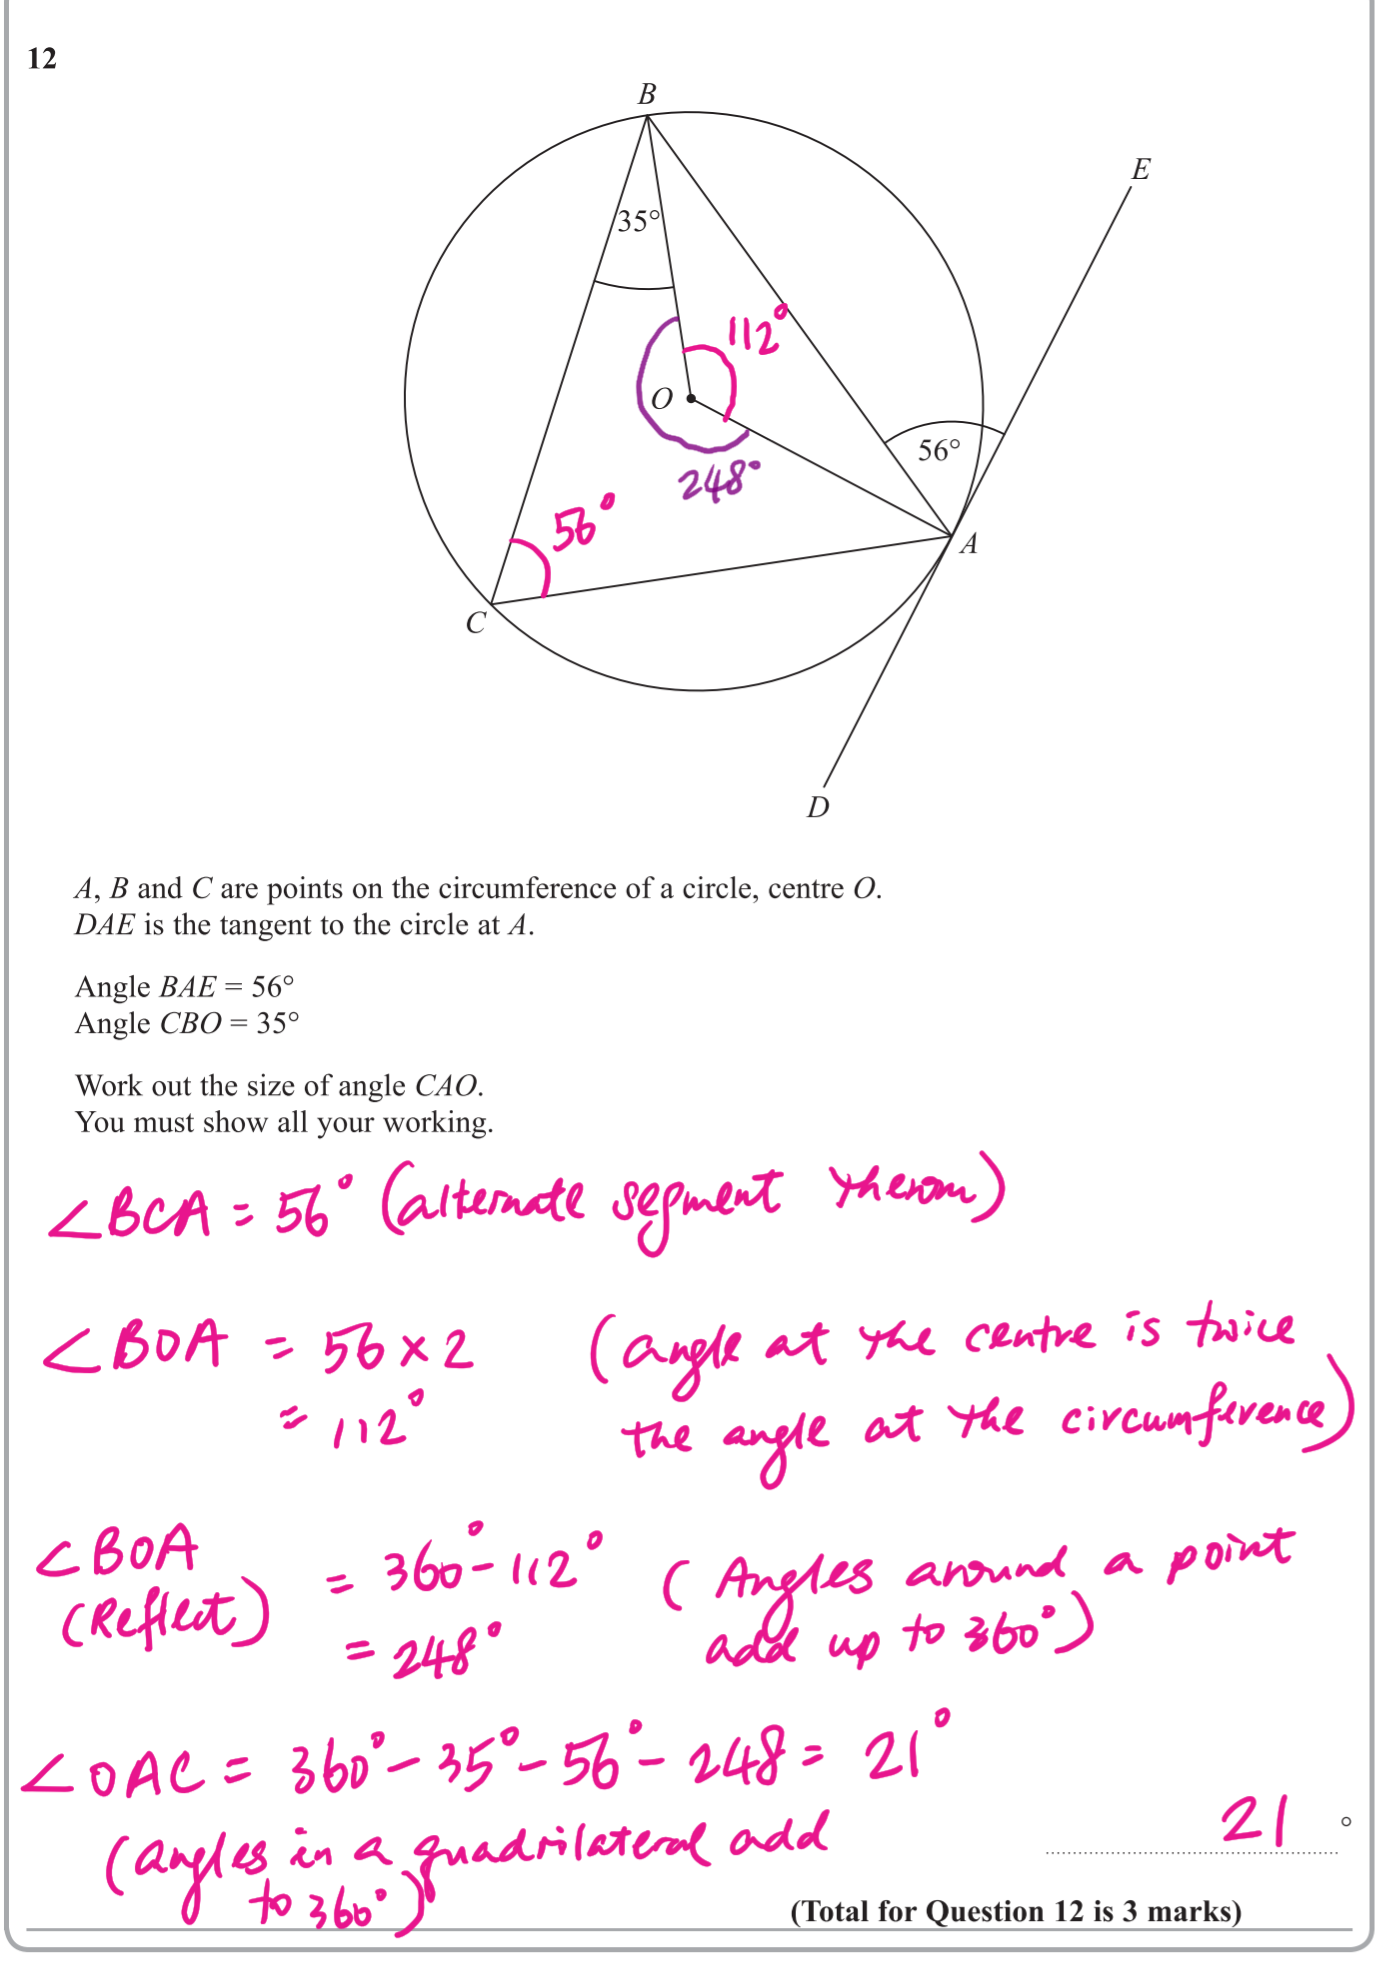 12
B
E
35°
112°
O
56°
248°
56°
A
C
D
A, B and C are points on the circumference of a circle, centre O.
DAE is the tangent to the circle at A.
Angle BAE = 56°
Angle CBO = 35°
Work out the size of angle CAO.
You must show all your working.
∠BCA = 56° (alternate segment therom)
∠BOA = 56 × 2 (angle at the centre is twice
= 112° the angle at the circumference)
∠BOA = 360° - 112° (Angles around a point
(Reflect) = 248° add up to 360°)
∠OAC = 360° - 35° - 56° - 248 = 21°
(angles in a quadrilateral add
to 360°)
21 °
(Total for Question 12 is 3 marks)